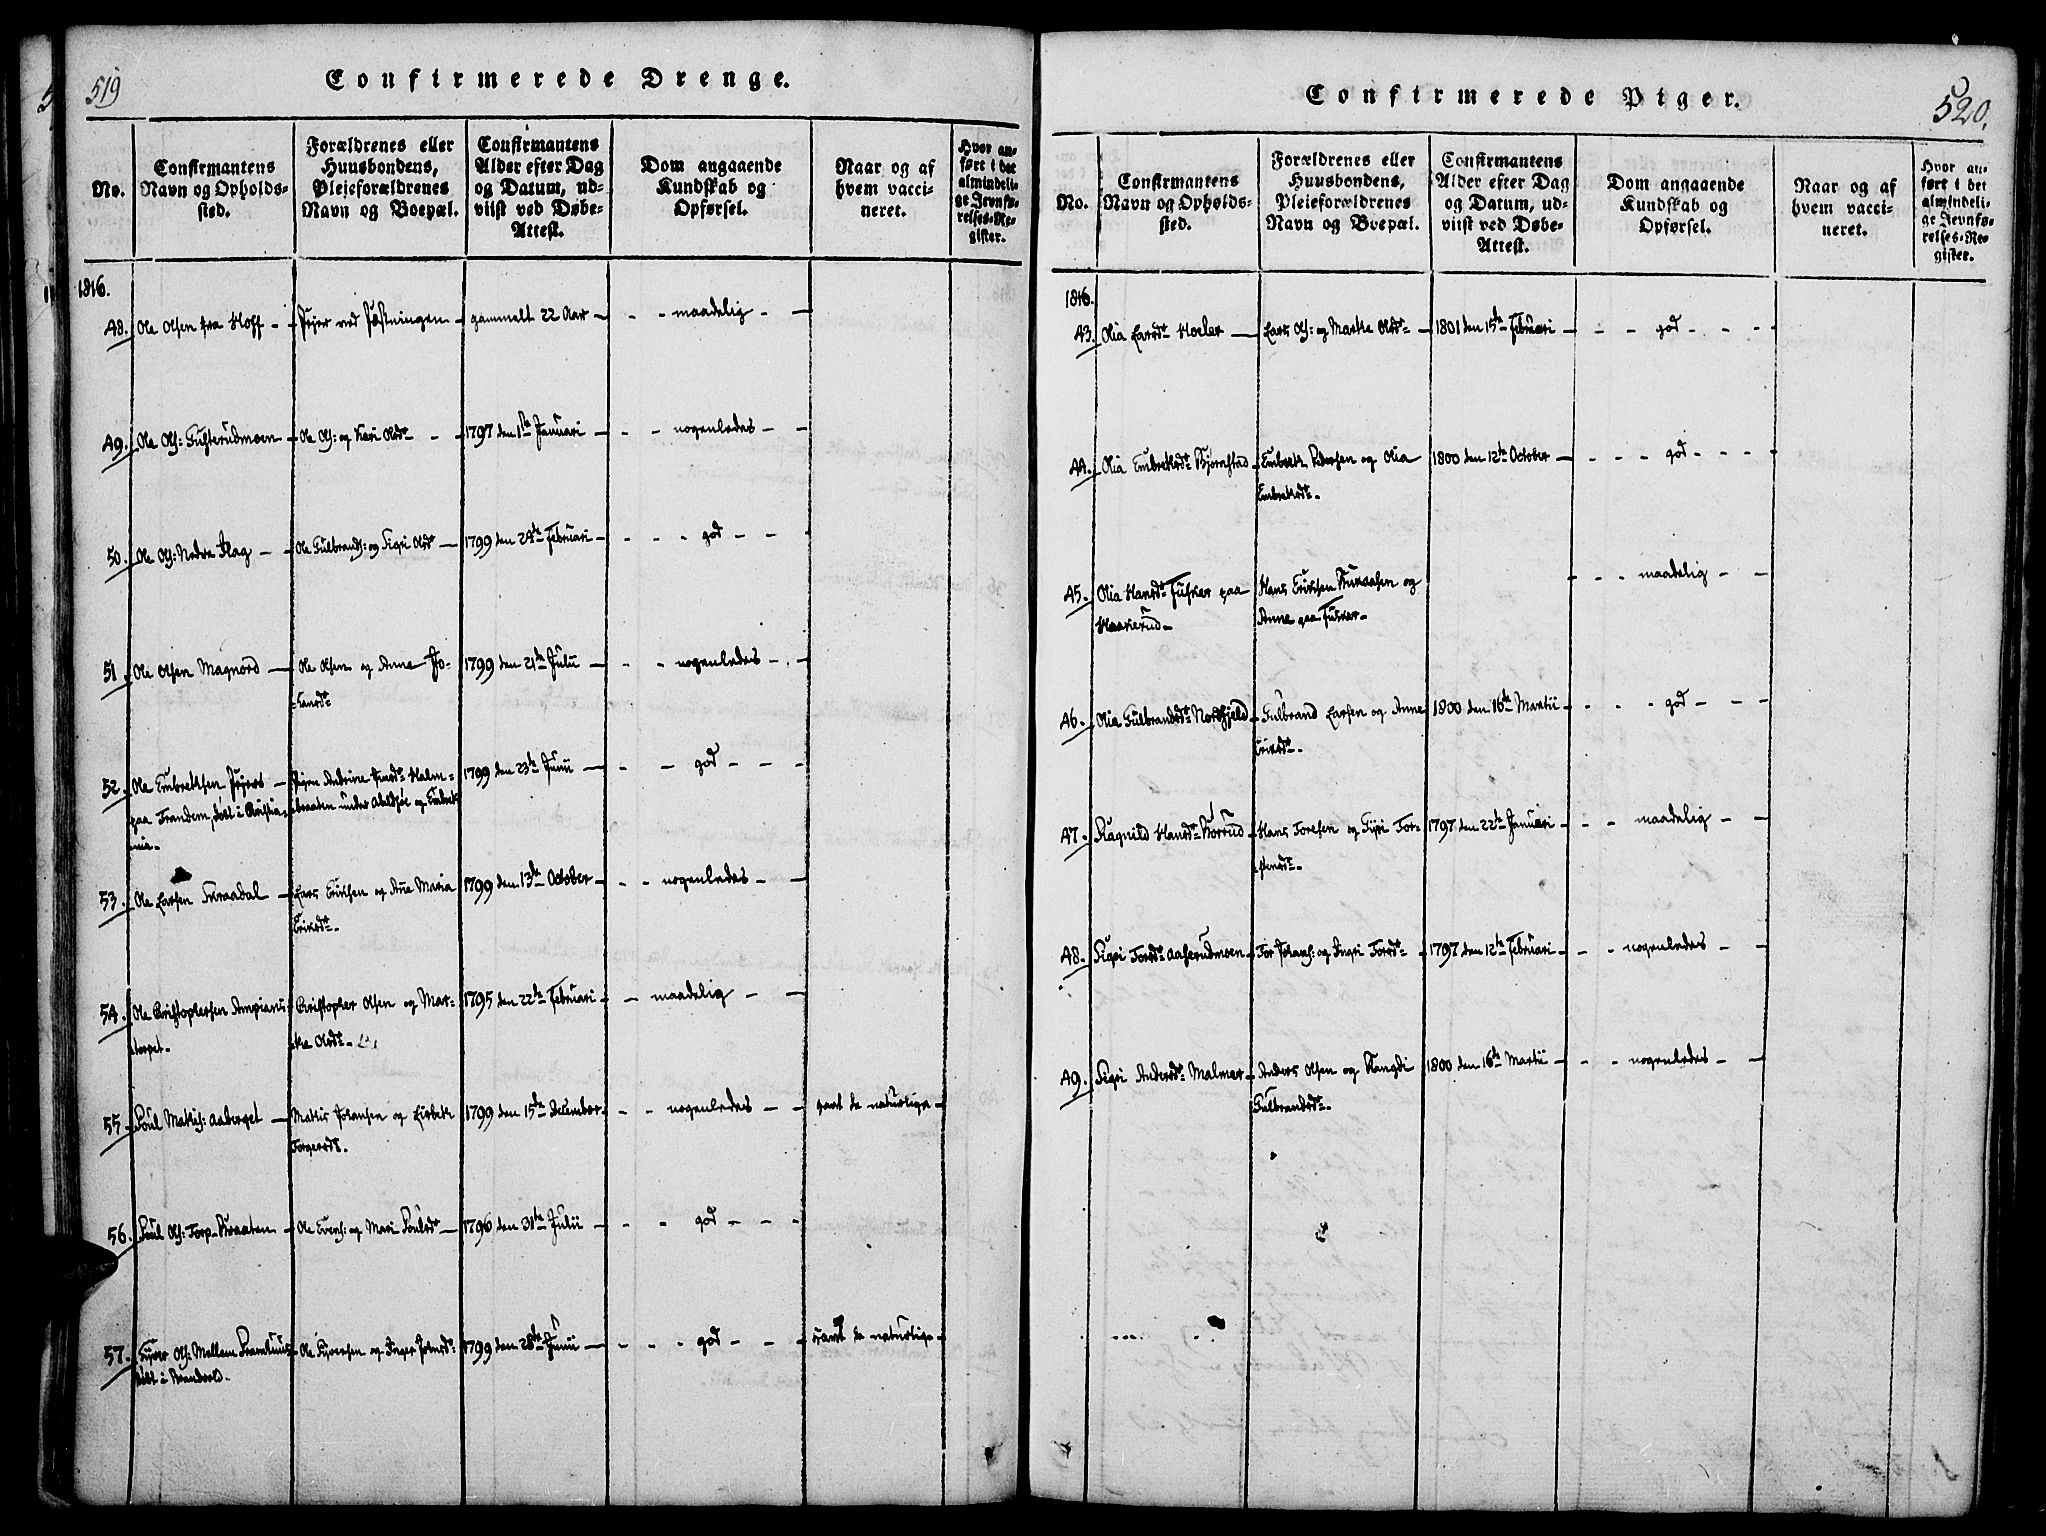 519
Confirmerede Drenge.
No.
Confirmantens
Navn og Opholds-
sted.
Forældrenes eller
Huusbondens,
Plejeforældrenes
Navn og Boepæl.
Confirmantens
Alder efter Dag
og Datum, ud-
viist ved Døbe-
Attest.
Dom angaaende
Kundskab og
Opførsel.
Naar og af
hvem vacci-
neret.
Hvor an-
ført i det
almindeli-
ge Jevnfø-
relses-Re-
gister.
1816.
48. Ole Olsen fra Hoff - - ved Fæstningen - gammelt 22 Aar - - - maadelig - -
49. Ole Ols: - Ole Ols: og Kari Olsdr - - 1797 den 1te Januari - - - nogenledes - -
50. Ole Ols: Nedre Flag - - Ole Gulbrands: og Sigri Olsdr - 1799 den 24de Februari - - - - god - - -
51. Ole Olsen Magnord - Ole Olsen og Anne Jo-
hansdr 1799 den 21de Julii - - - nogenledes - . -
52. Ole Embretsen -
paa Trandem, født i Christia-
nia. -
og Embret 1799 den 23de Junii - - - god - - -
53. Ole Larsen Skraadal - Lars Eriksen og Ane Maria
Eriksdr. 1799 den 13de October - - - nogenledes - -
54. Ole Christophersen Ampians-
torpet. Christopher Olsen og Mar-
the Olsdr. 1795 den 22de Februari - - maadelig - -
55. Poul Mathis: Aaberget - Mathis Johansen og Lisbeth
Torgersdr. 1799 den 15de December - - - nogenledes - - havt de naturlige -
56. Poul Ols: Torp-Braaten - Ole Evens: og Mari Poulsdr - 1796 den 31te Julii - - - god - - -
57. Syver Ols: Mellem
født i Brandvold. Ole Syversen og Inger Johnsdr - 1799 den 28de Junii - - - - god - - - havt de naturlige -
Confirmerede Piger.
520.
No.
Confirmantens
Navn og Opholds-
sted.
Forældrenes eller
Huusbondens,
Pleieforældrenes
Navn og Boepæl.
Confirmantens
Alder efter Dag
og Datum, ud-
viist ved Døbe-
Attest.
Dom angaaende
Kundskab og
Opførsel.
Naar og af
hvem vacci-
neret.
Hvor an-
ført i det
almindeli-
ge Jevnfø-
relses-Re-
gister.
1816.
43. Olia Larsdr Hoeler - Lars Ols: og Marthe Olsdr - 1801 den 15de Februari - - - god - - - -
44. Olia Embretsdr Bjørnstad - Embreth Pedersen og Olia
Embretsdr. 1800 den 12te October - - - - god - - - -
45. Olia Hansdr Fusker paa
Haakerud - Hans Eriksen og
Anne paa Fusker - - - - maadelig - -
46. Olia Gulbrandsdr Nordhjeld - Gulbrand Larsen og Anne
Eriksdr. 1800 den 16de Martii - - - - god - - -
47. Ragnild Hansdr - Hans Toresen og Siri Tor-
stensdr. 1797 den 22de Januari - - - maadelig - -
48. Sigri Torsdr Aaserudmoen - Tor Johans: og Ingri Torsdr - 1797 den 12te Februari - - - nogenledes - -
49. Sigri Andersdr Malmer - Anders Olsen og Rangdi
Gulbrandsdr. 1800 den 16de Martii - - - nogenledes - -